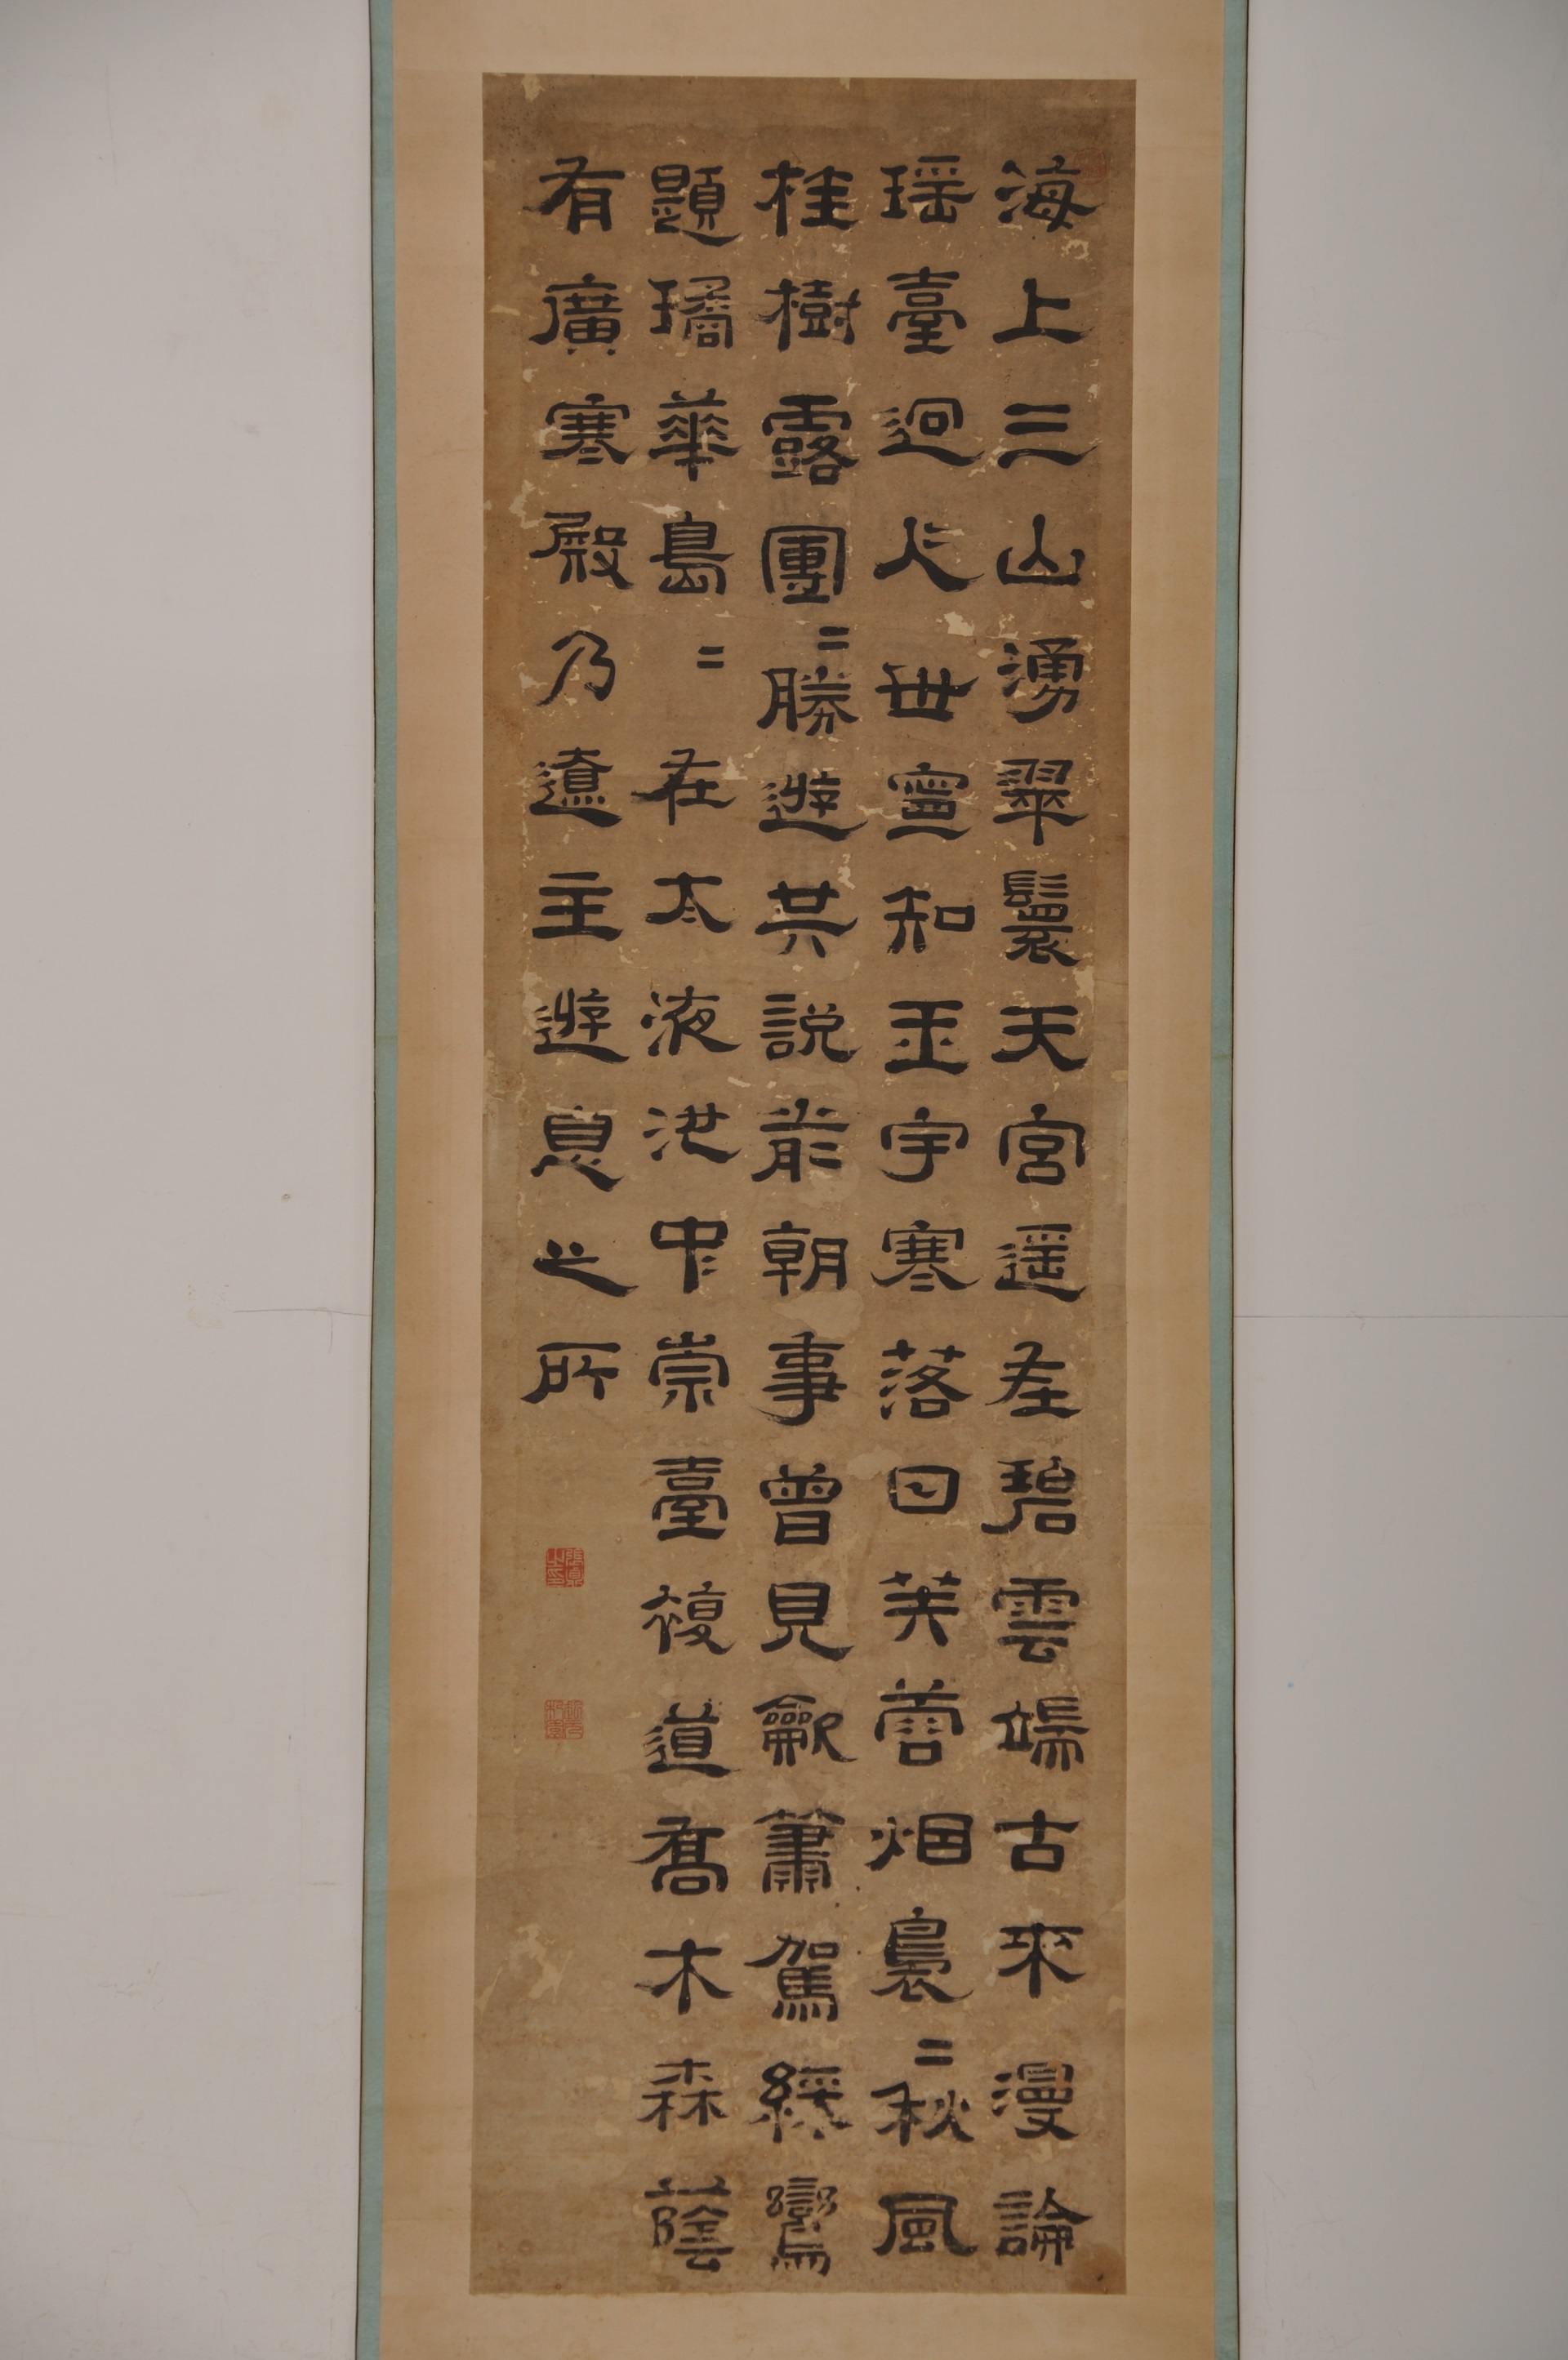 海上三山湧翠鬟天宮遥在碧雲端古來漫論
瑶臺迥人世寧知玉宇寒落日芙蓉烟裊〻秋風
桂樹露團〻勝遊共說前朝事曾見龡簫駕綵鸞
題璚華島〻在太液池中崇臺複道喬木森蔭
有廣寒殿乃遼主遊息之所